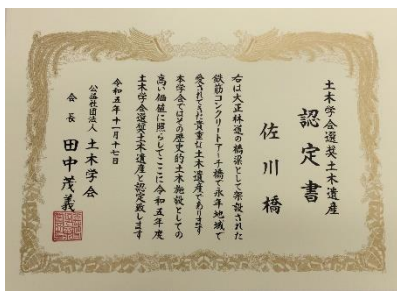 土木学会選奨土木遺産
認定書
佐川橋
右は大正林道の橋梁として架設された
鉄筋コンクリートアーチ橋で永年地域で
愛されてきた貴重な土木遺産であります
本学会ではその歴史的土木施設としての
高い価値に照らしてここに令和五年度
土木学会選奨土木遺産と認定致します
令和五年十一月十七日
公益社団法人 土木学会
会長 田中茂義